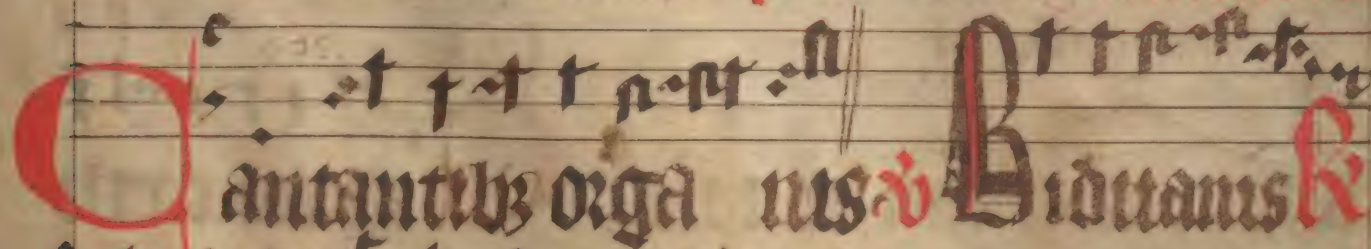 Cantantibꝫ organis ℣ Biduanis ℟